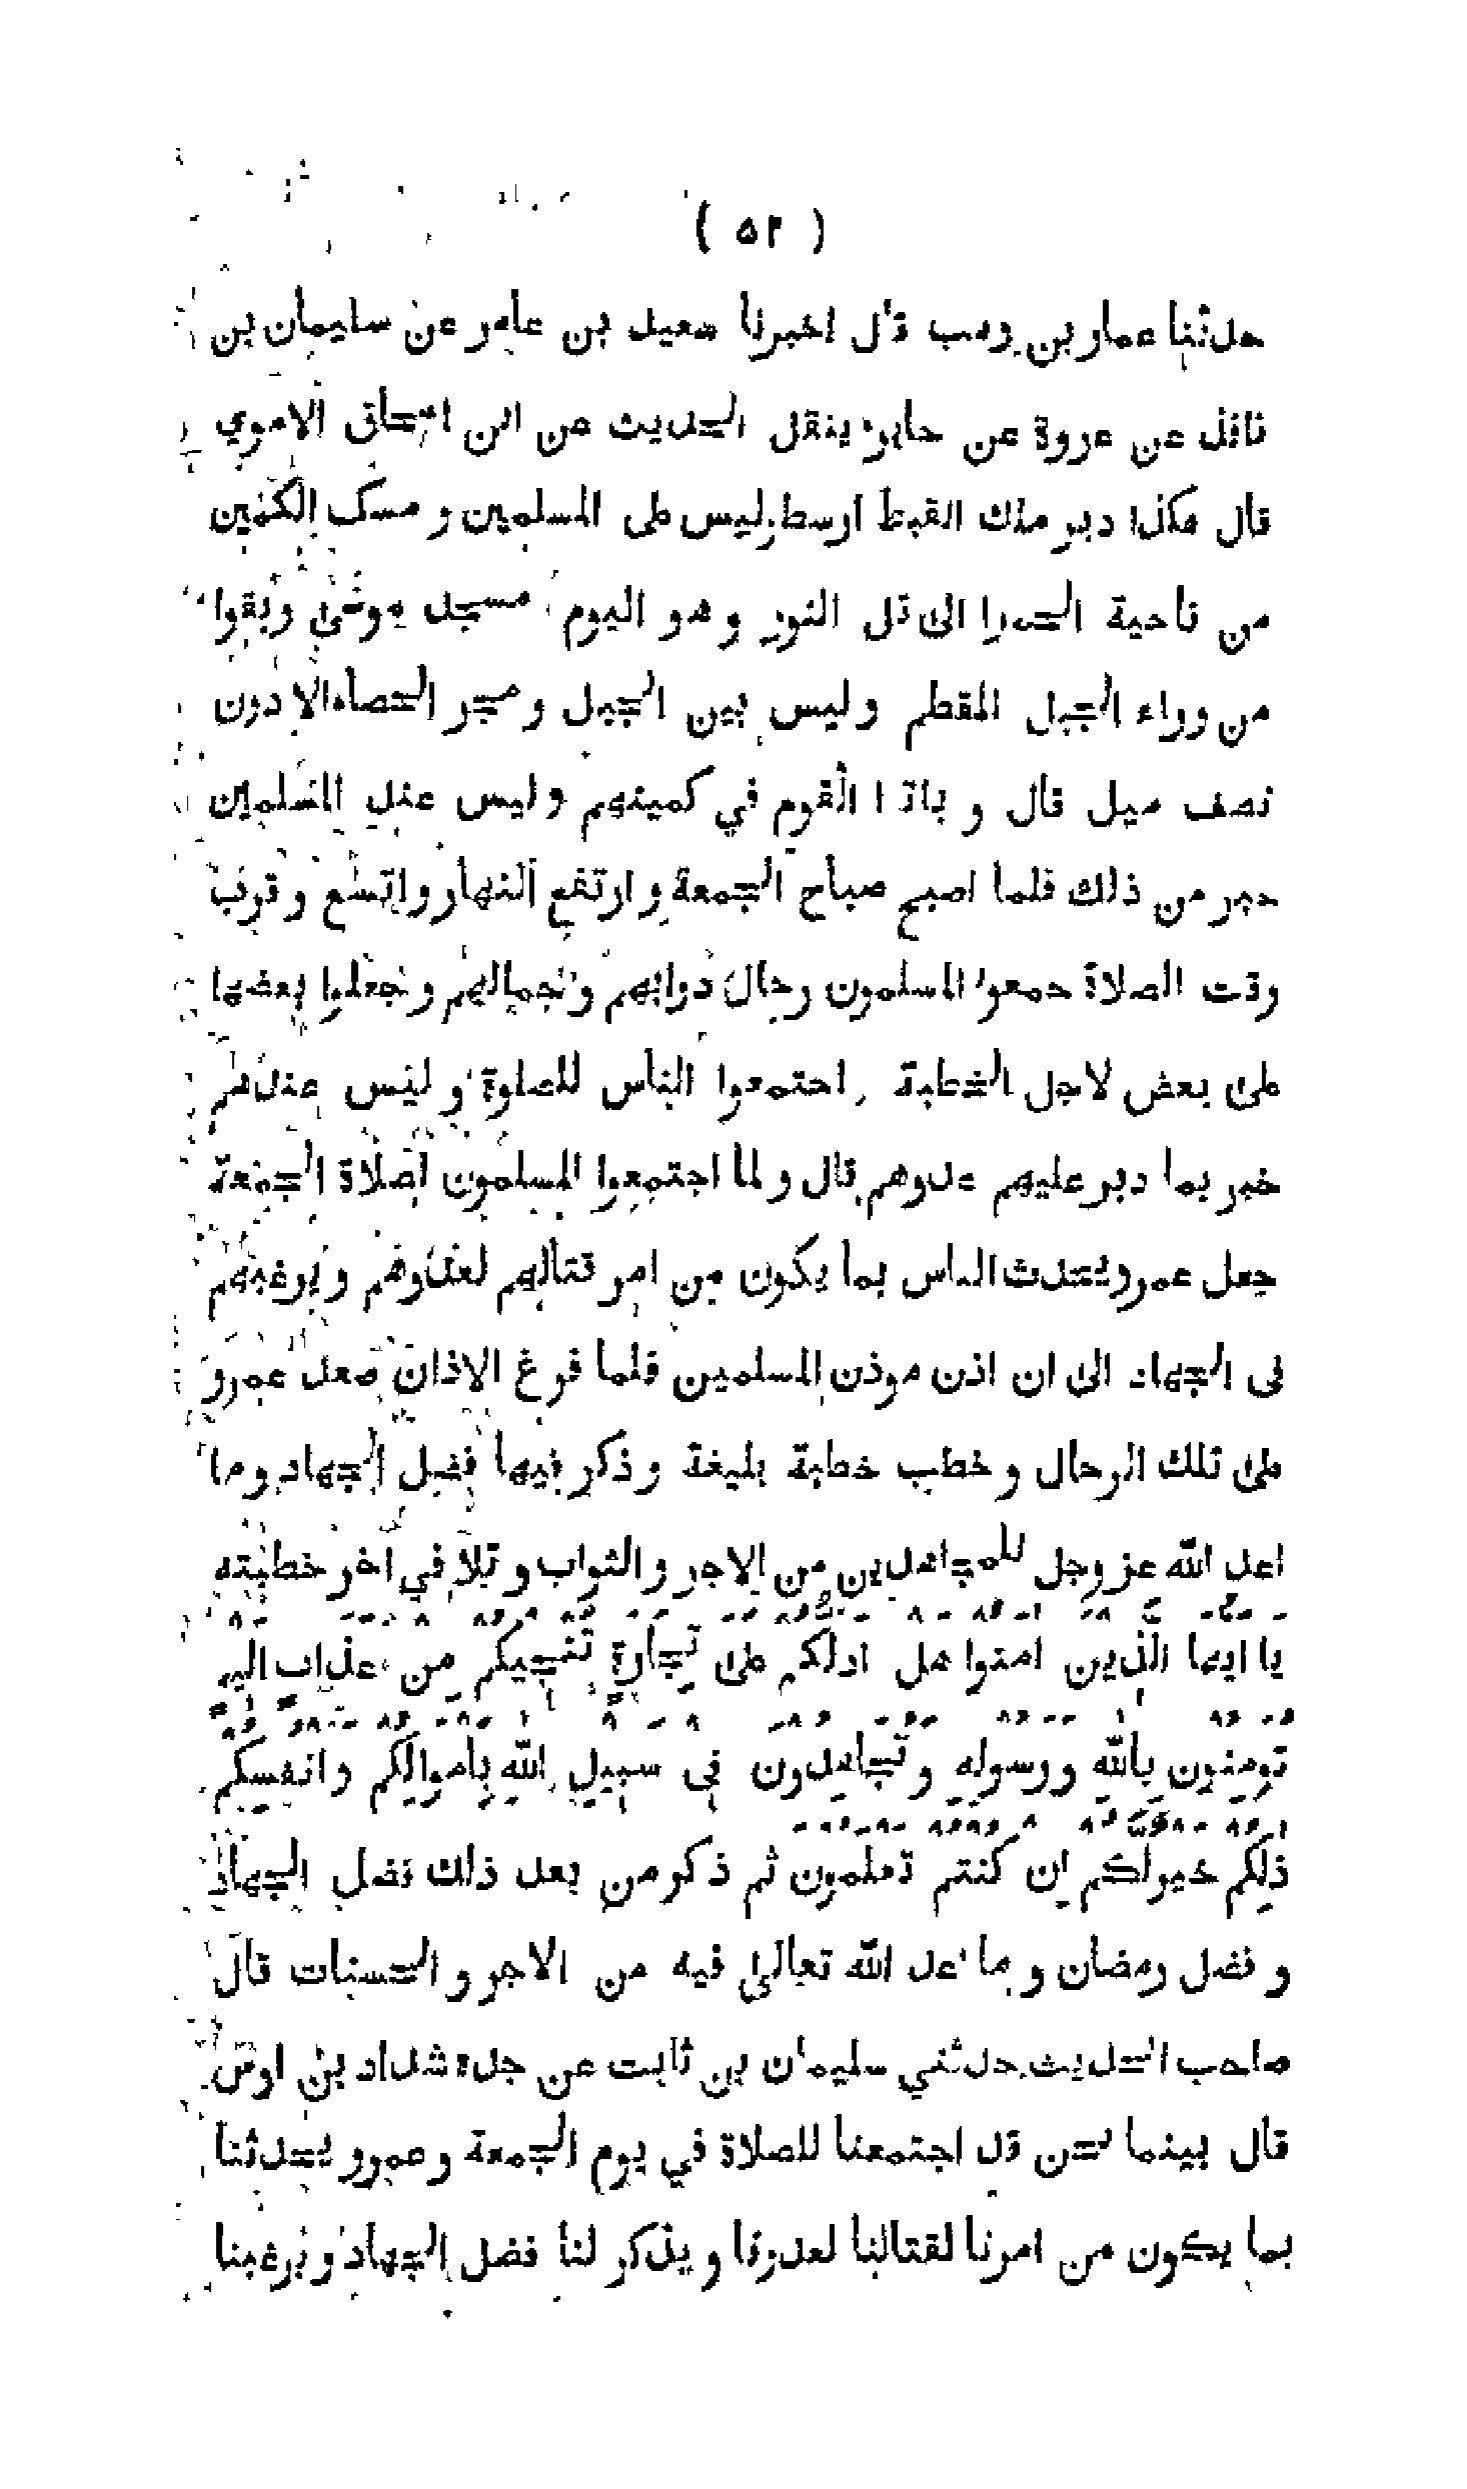 ( ٥٢ )
حدثنا عمار بن وهب قال اخبرنا سعيد بن عامر عن سليمان بن
نافل عن عروة عن جابر ينقل الحديث عن ابن اسحاق الاموي
قال هكذا دبر ملك القبط ارسطوليس على المسلمين ومسك الكمين
من ناحية الحمرا الى تل النور وهو اليوم مسجد موسى وبقوا
من وراء الجبل المقطم وليس بين الجبل ومجر الحصاة الا دون
نصف ميل قال و باتوا القوم في كمينهم وليس عند المسلمين
خبر من ذلك فلما اصبح صباح الجمعة وارتفع النهار واتسع وقرب
وقت الصلاة جمعوا المسلمون رحال دوابهم وجمالهم وجعلوا بعضها
على بعض لاجل الخطبة واجتمعوا الناس للصلوة وليس عندهم
خبر بما دبر عليهم عدوهم قال ولما اجتمعوا المسلمون لصلاة الجمعة
جعل عمرو يحدث الناس بما يكون من امر قتالهم لعدوهم ويرغبهم
فى الجهاد الى ان اذن موذن المسلمين فلما فرغ الاذان صعد عمرو
على تلك الرحال وخطب خطبة بليغة وذكر فيها فضل الجهاد وما
اعد الله عز وجل للمجاهدين من الاجر والثواب وتلا في آخر خطبته
يا ايها الذين امنوا هل ادلكم على تجارة تنجيكم من عذاب اليم
تُومِنُون بِاللهِ ورسولِهِ وتُجاهِدُون فِى سبيلِ اللهِ بِاموالِكُم وانفسِكُم
ذلِكم خير لكم اِن كنتم تعلمون ثم ذكر من بعد ذلك فضل الجهاد
و فضل رمضان وما اعد الله تعالى فيه من الاجر والحسنات قال
صاحب الحديث حدثني سليمان بن ثابت عن جده شداد بن اوس
قال بينما نحن قد اجتمعنا للصلاة في يوم الجمعة وعمرو يحدثنا
بما يكون من امرنا لقتالنا لعدونا ويذكر لنا فضل الجهاد ويرغبنا